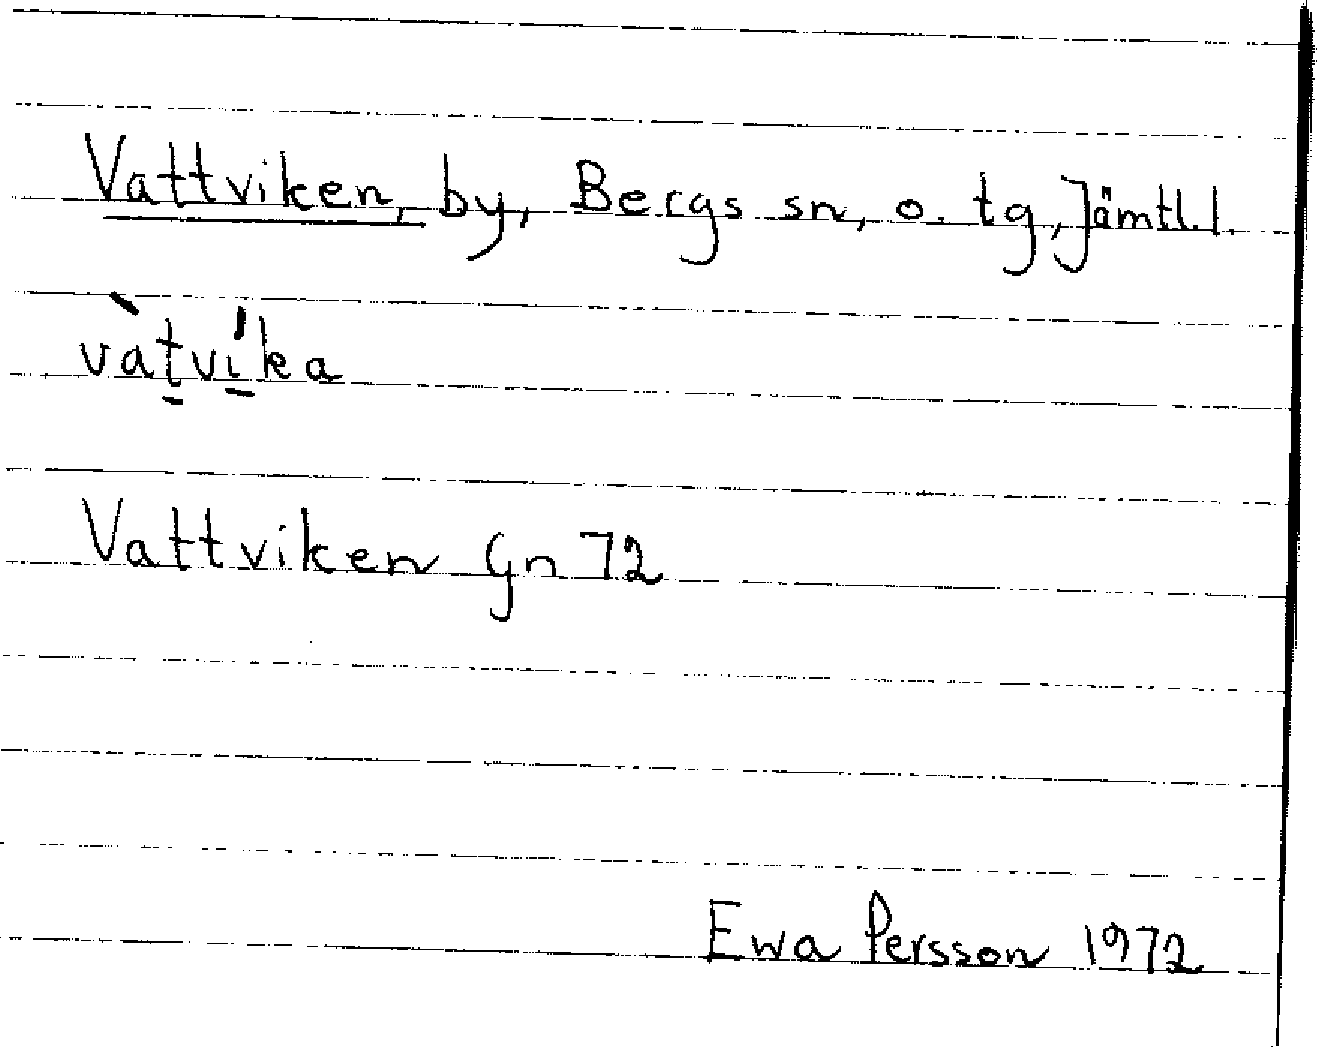 Vattviken, by, Bergs sn, o. tg, Jämtl.l.
vàt̠ví̠ka
Vattviken Gn 72
Ewa Persson 1972